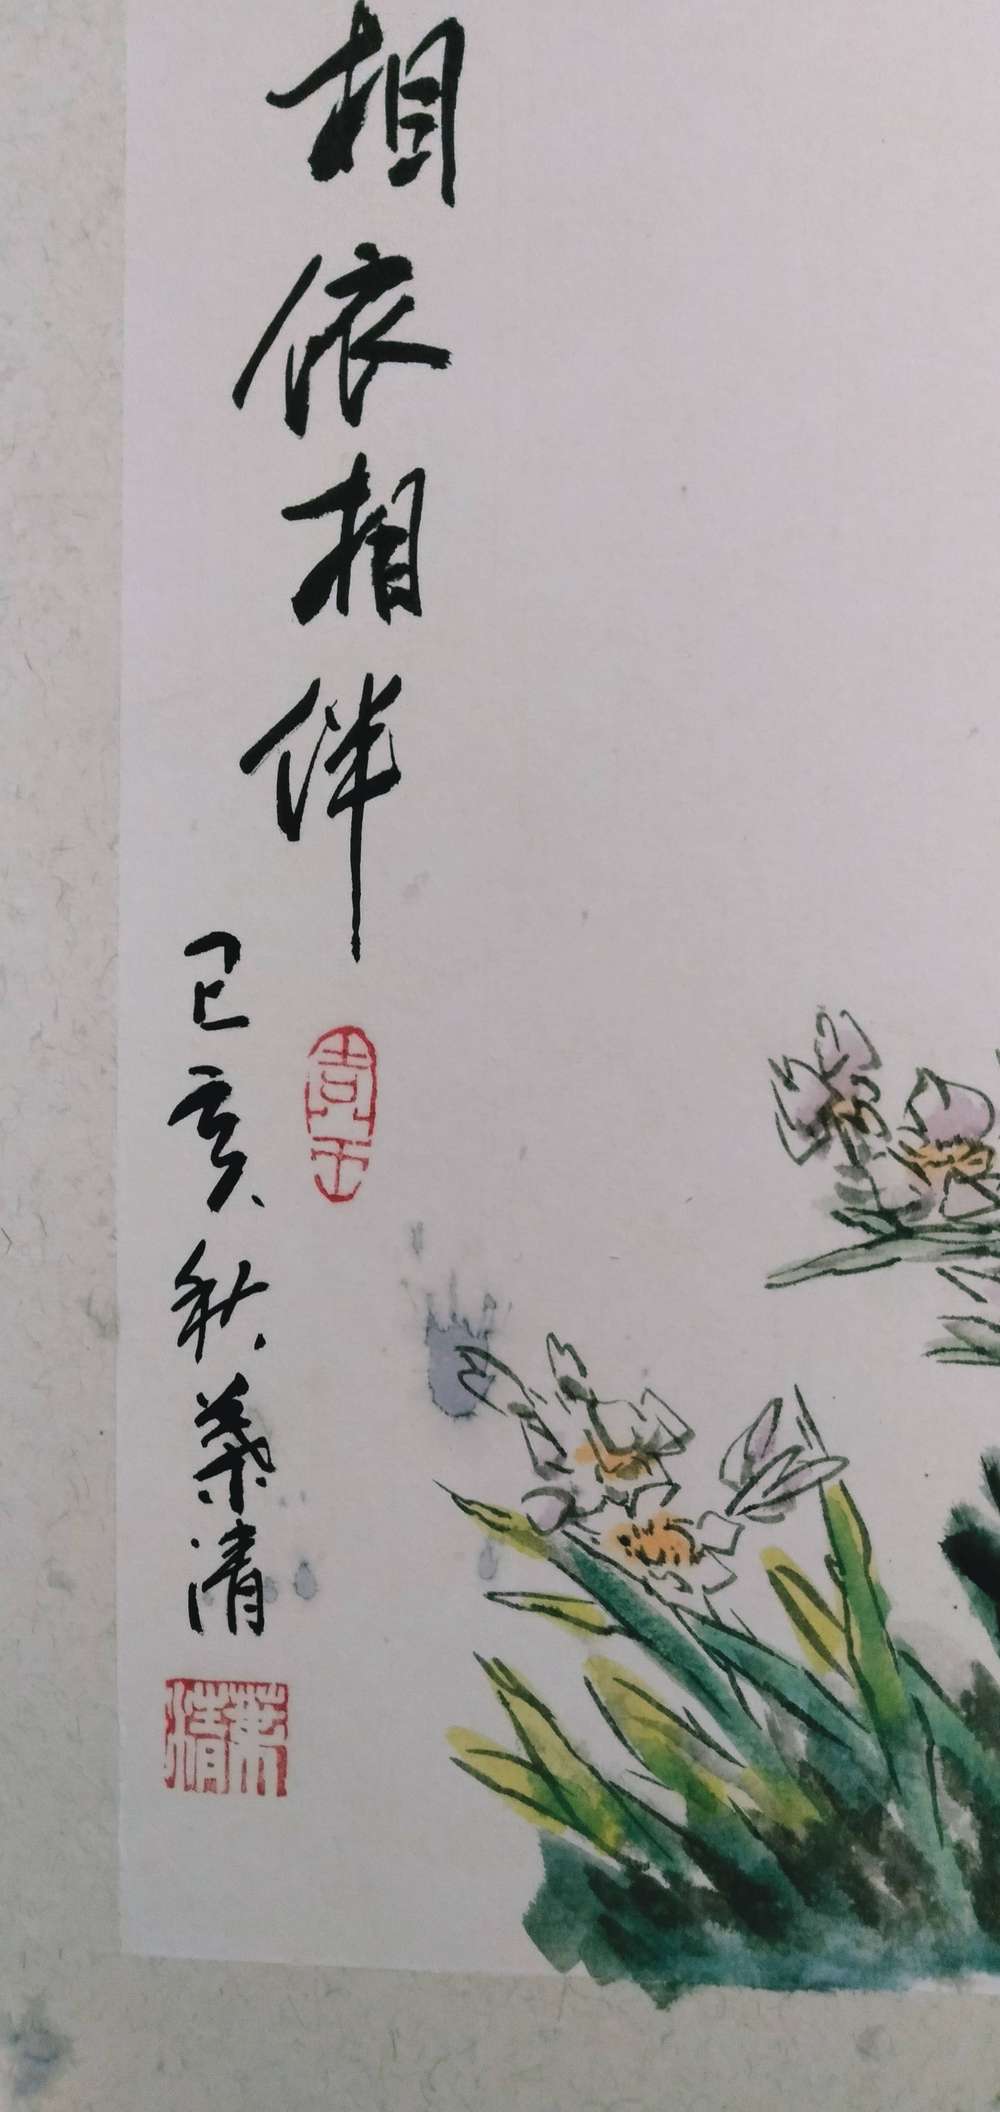 相依相伴
己亥秋葉清
葉清